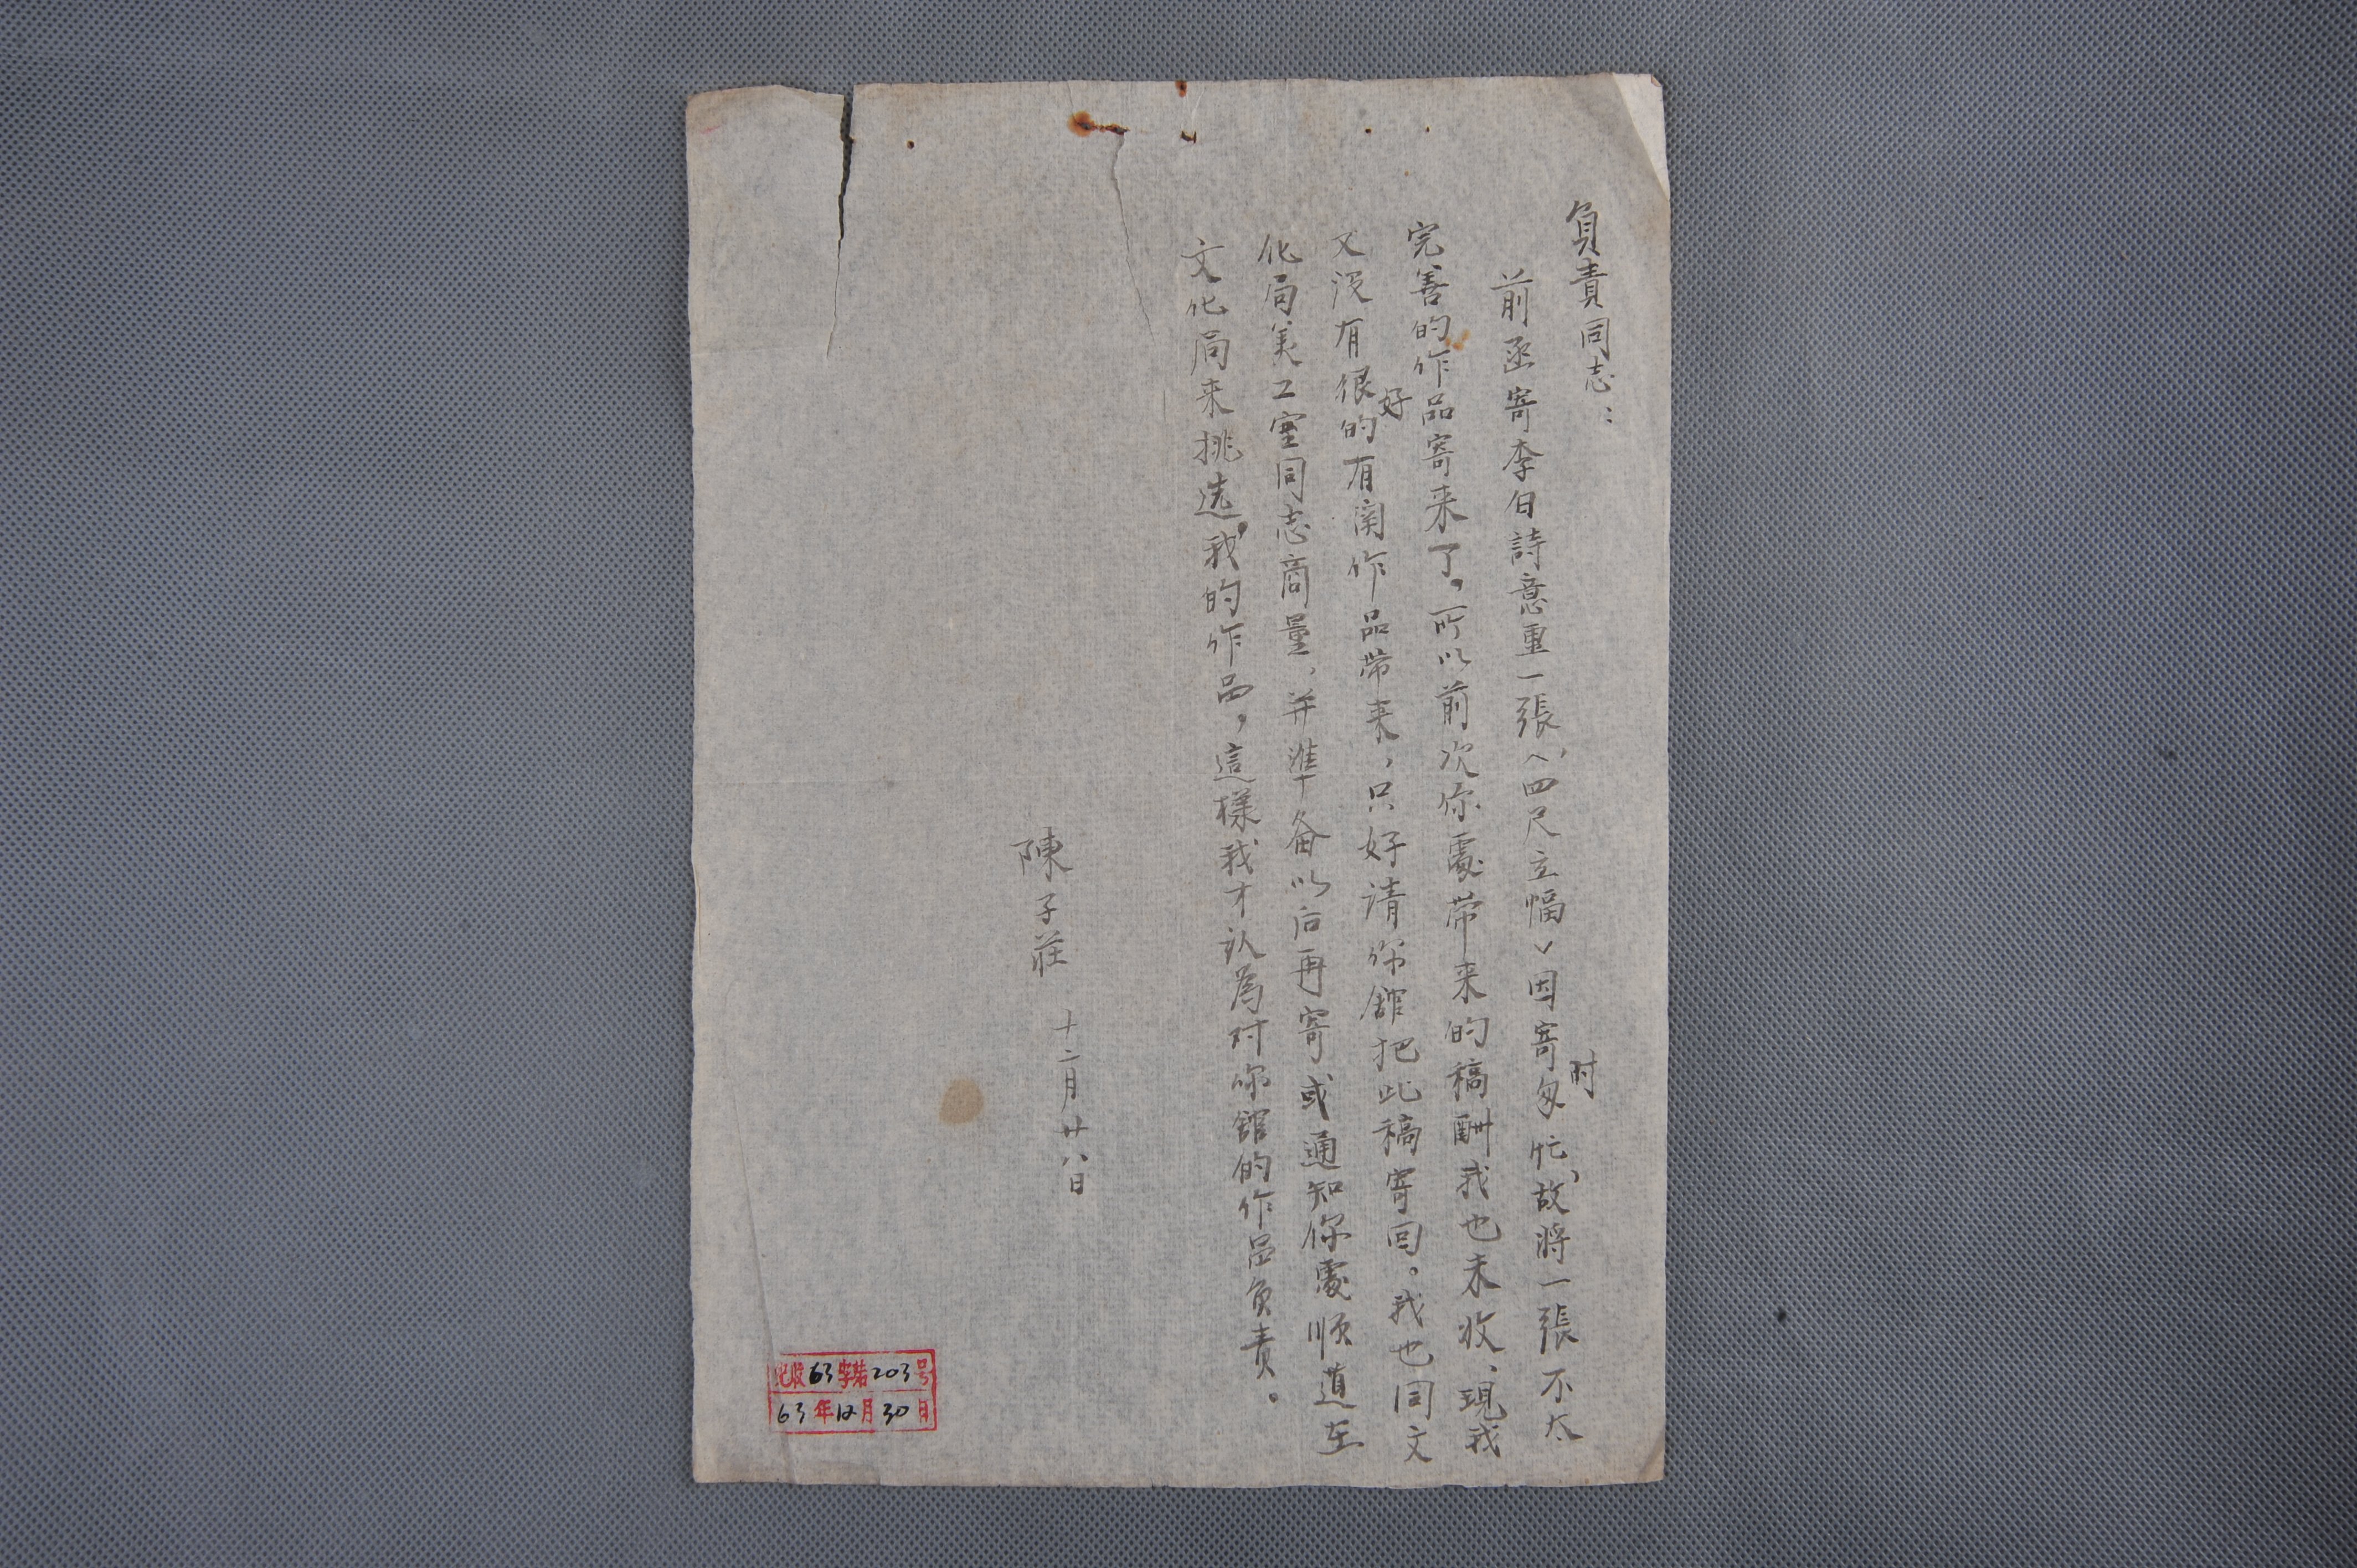 負責同志：
前函寄李白詩意畫一張，（四尺立幅）因寄時匆忙，故將一張不太
完善的作品寄来了。所以前次你處带来的稿酬我也未收、現我
又没有很好的有関作品带来，只好请你舘把此稿寄回。我也同文
化局美工室同志商量，并準备以后再寄或通知你處顺道至
文化局来挑选，我的作品，這樣我才认為对你舘的作品负责。
陳子莊
十二月廿八日
收63字第203号
63年12月30日